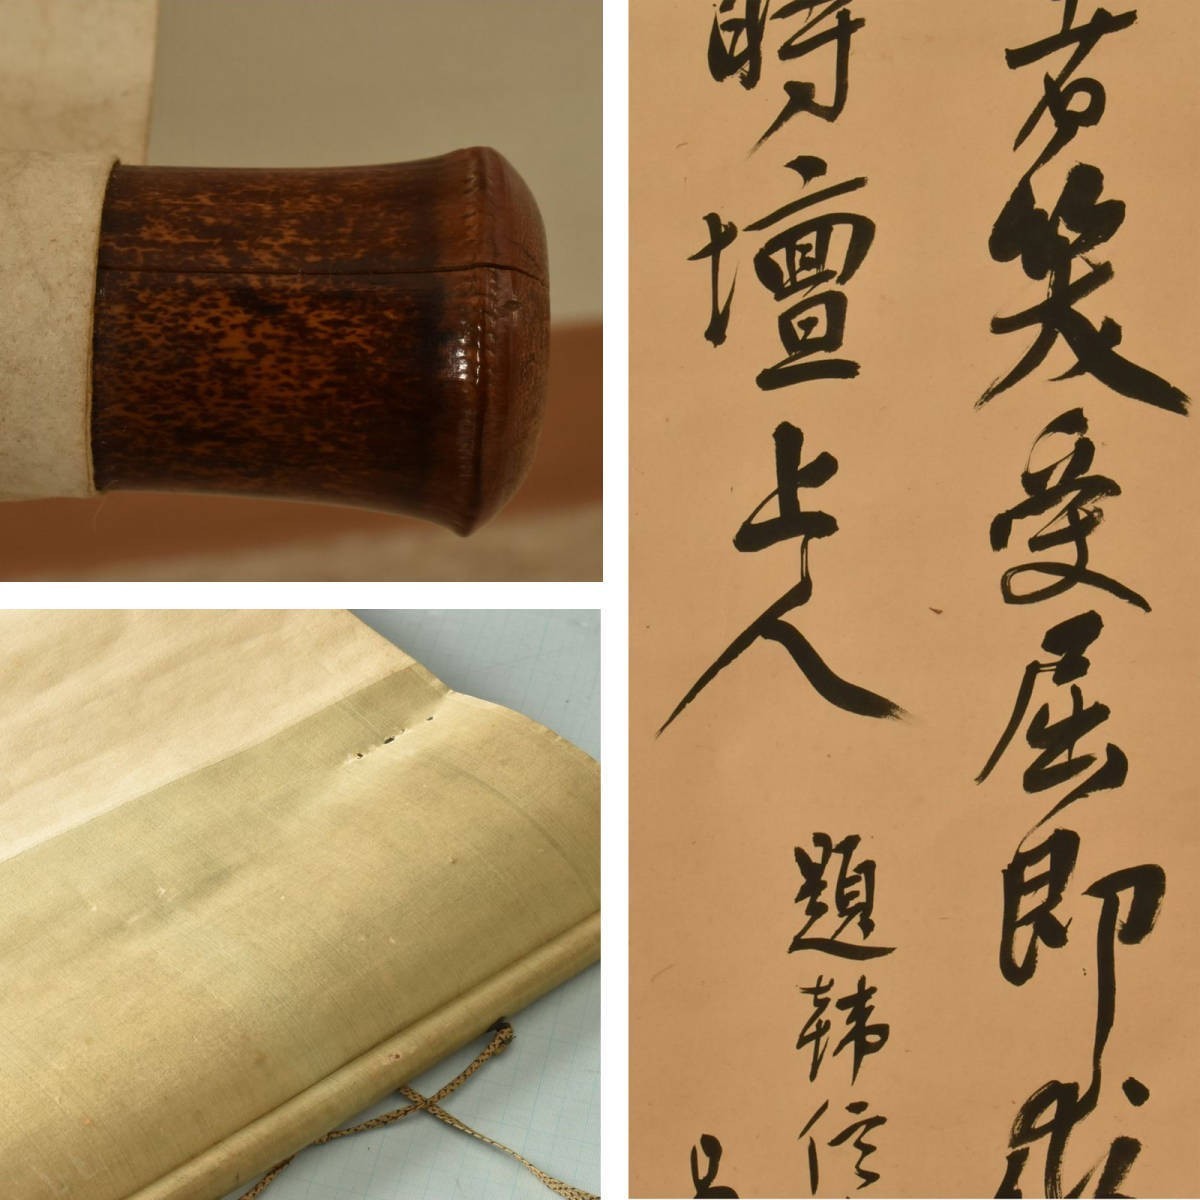 者笑受屈即
時壇上人
題韓信